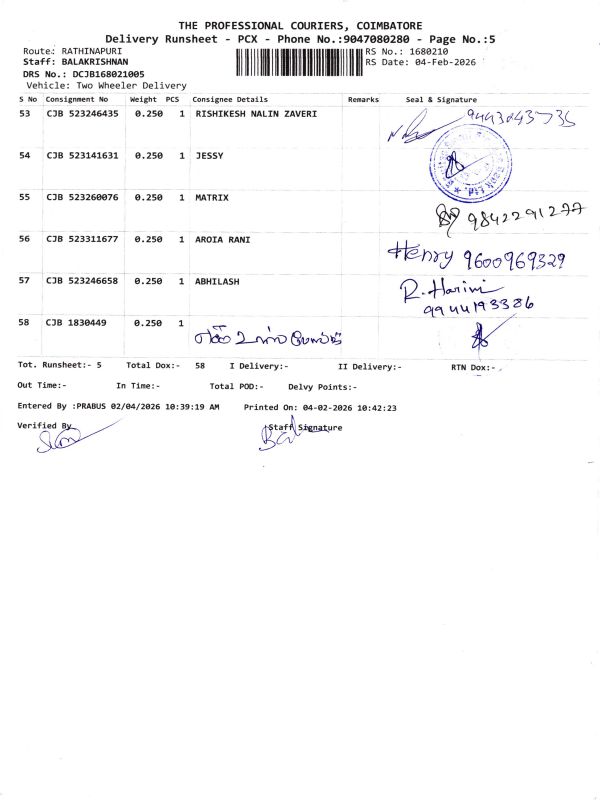 THE PROFESSIONAL COURIERS, COIMBATORE
Delivery Runsheet - PCX - Phone No.:9047080280 - Page No.:5
Route: RATHINAPURI RS No.: 1680210
Staff: BALAKRISHNAN RS Date: 04-Feb-2026
DRS No.: DCJB168021005
Vehicle: Two Wheeler Delivery
S No Consignment No Weight PCS Consignee Details Remarks Seal & Signature
53 CJB 523246435 0.250 1 RISHIKESH NALIN ZAVERI
54 CJB 523141631 0.250 1 JESSY
55 CJB 523260076 0.250 1 MATRIX
9842291277
56 CJB 523311677 0.250 1 AROIA RANI Henry 9600969329
57 CJB 523246658 0.250 1 ABHILASH R. Harini
9944193386
58 CJB 1830449 0.250 1
Tot. Runsheet:- 5 Total Dox:- 58 I Delivery:- II Delivery:- RTN Dox:-
Out Time:- In Time:- Total POD:- Delvy Points:-
Entered By :PRABUS 02/04/2026 10:39:19 AM Printed On: 04-02-2026 10:42:23
Verified By Staff Signature